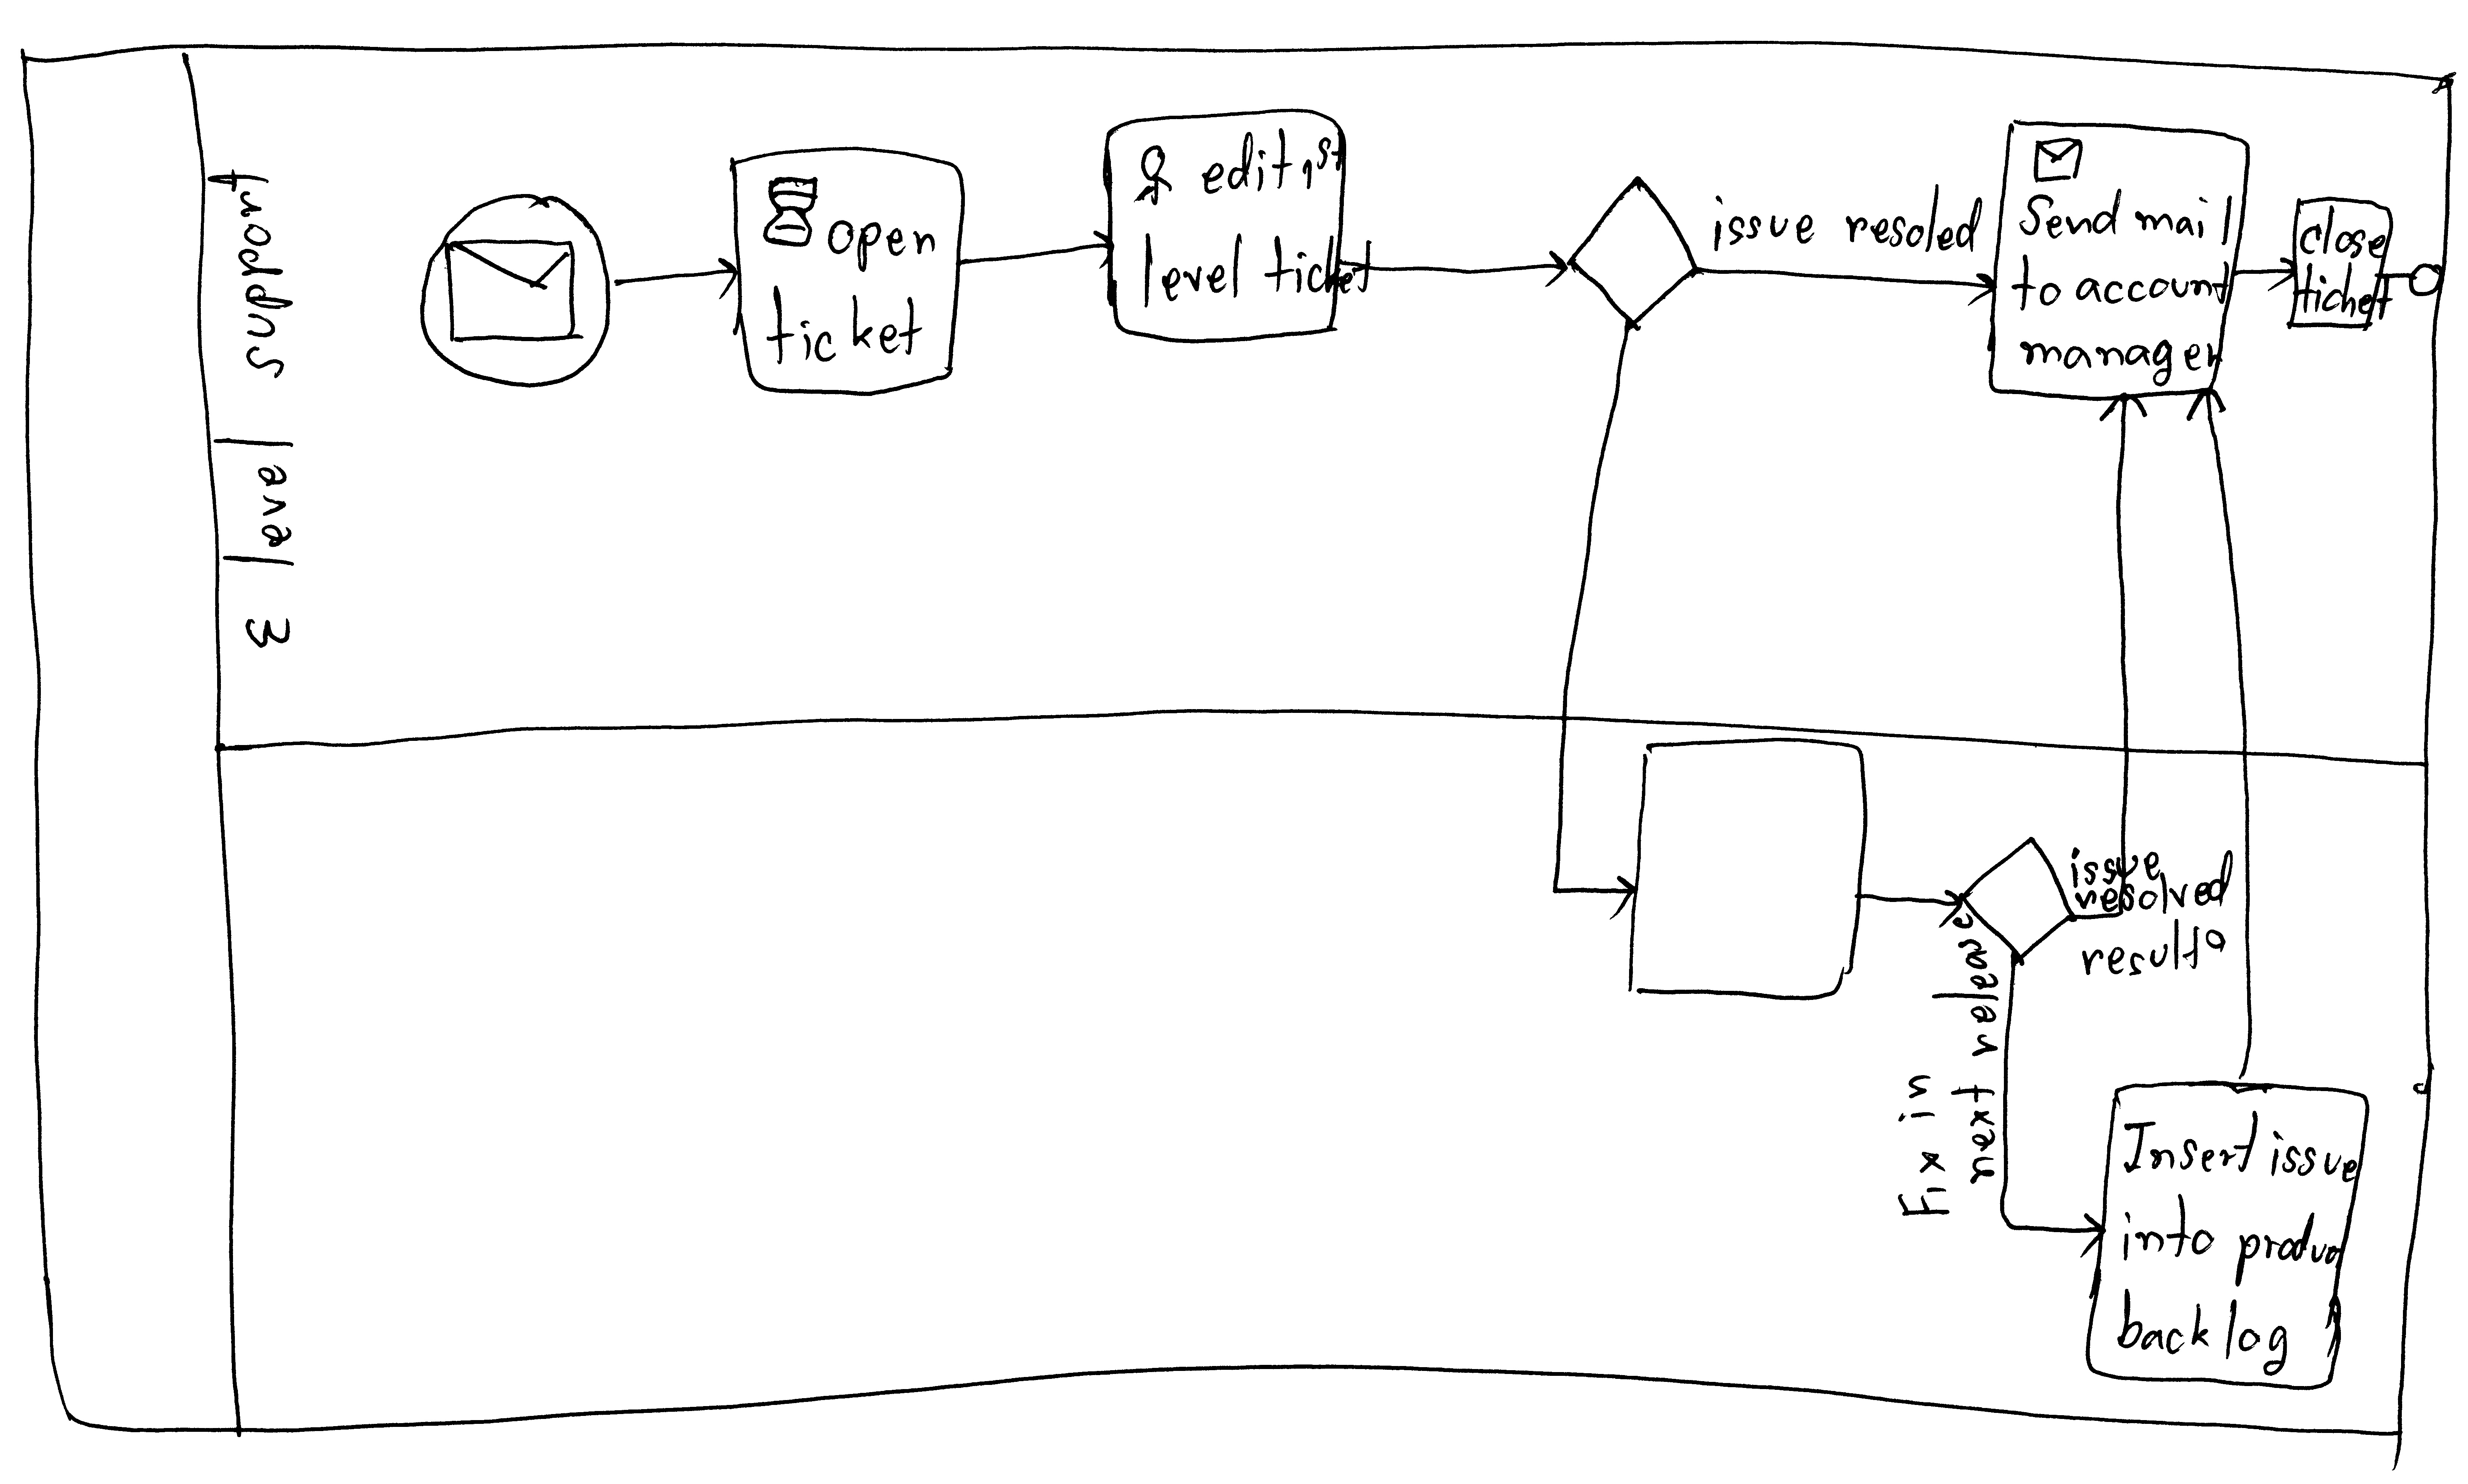 3 level support
open
ticket
edit 1st
level ticket
issue resoled
Send mail
to account
manager
close
ticket
issue
resolved
result
Fix in
next release
Insert issue
into produ
backlog